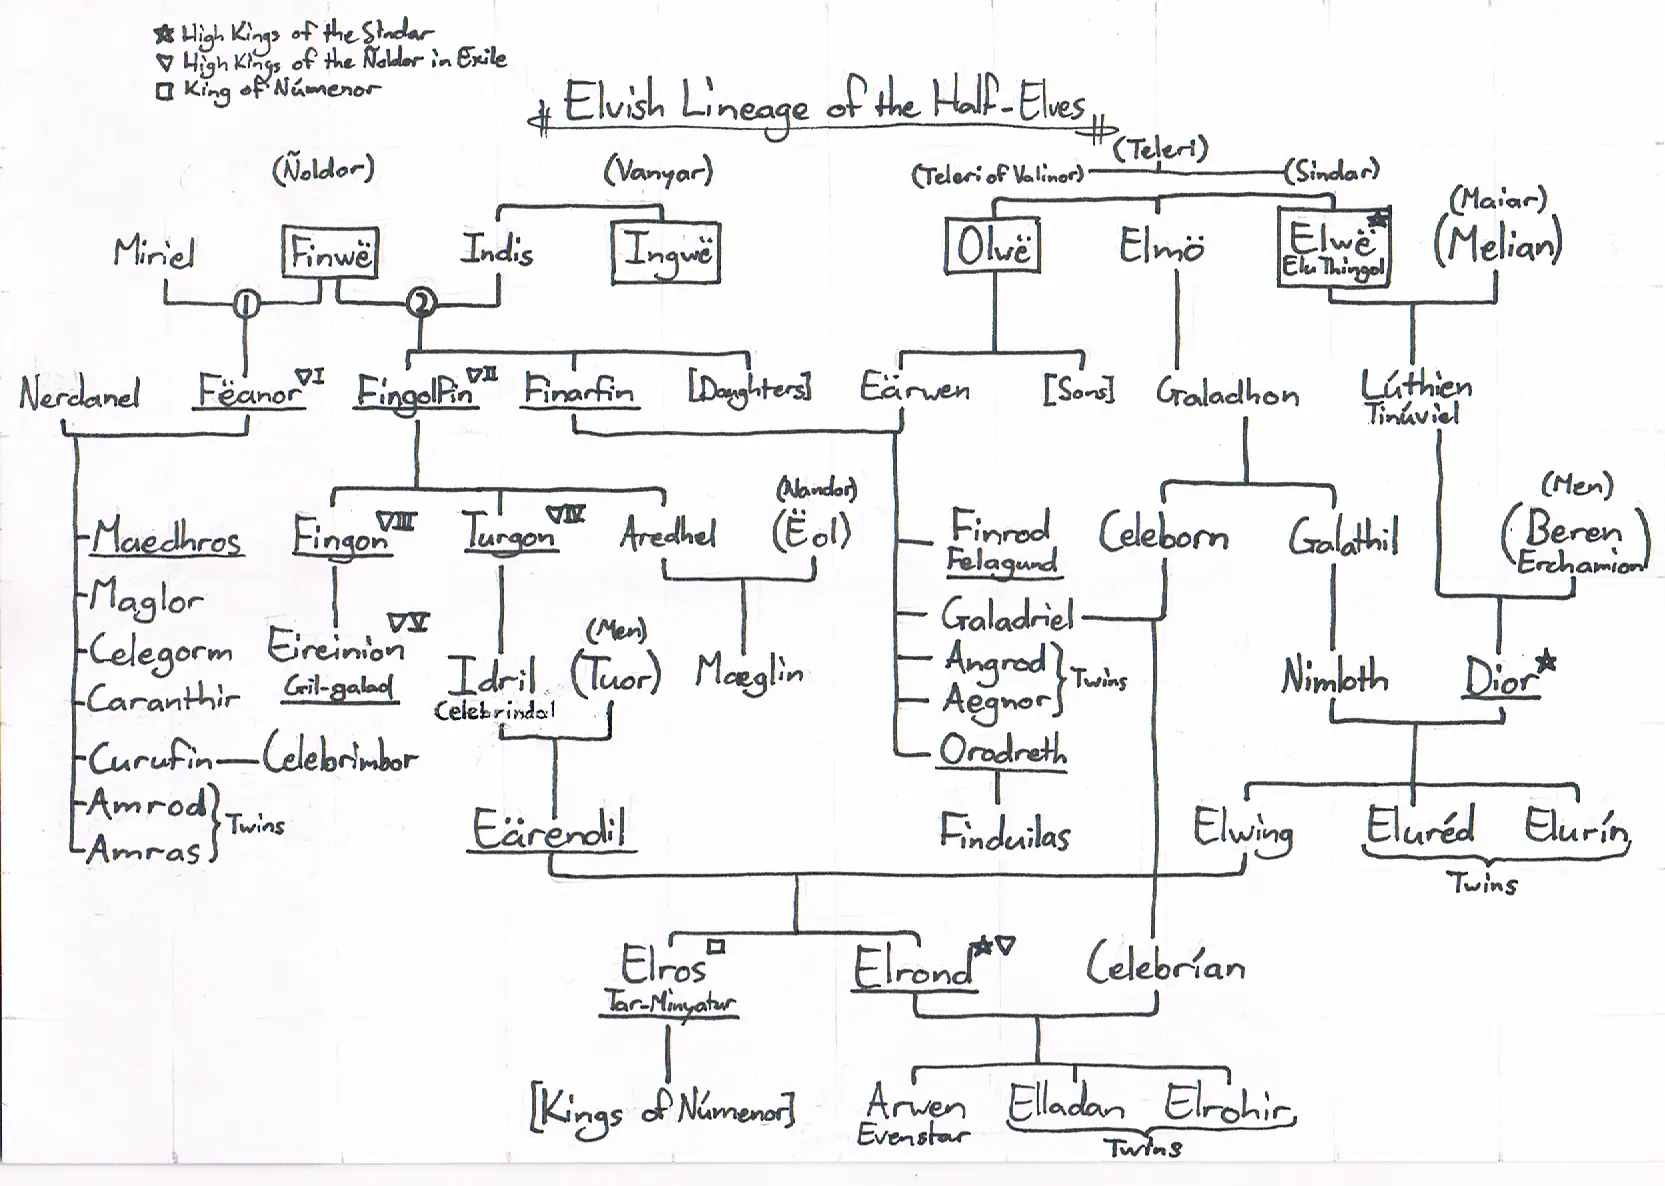 ★ High Kings of the Sindar
▽ High Kings of the Ñoldor in Exile
□ King of Númenor
Elvish Lineage of the Half-Elves
(Teleri)
(Ñoldor) (Vanyar) (Teleri of Valinor) (Sindar)
(Maiar)
Miriel Finwë Indis Ingwë Olwë Elmö Elwë ★ (Melian)
Elu Thingol
1 2
Nerdanel Fëanor ▽I Fingolfin ▽II Finarfin [Daughters] Eärwen [Sons] Galadhon Lúthien
Tinúviel
(Nandor) (Men)
Maedhros Fingon ▽III Turgon ▽IV Aredhel (Ëol) Finrod Celeborn Galathil (Beren)
Felagund Erchamion
Maglor Galadriel
▽V (Men)
Celegorm Eireinion Angrod
Twins
Caranthir Gil-galad Idril (Tuor) Maeglin Aegnor Nimloth Dior ★
Celebrindal
Curufin Celebrimbor Orodreth
Amrod
Twins
Amras Eärendil Finduilas Elwing Eluréd Elurín
Twins
Elros □ Elrond ★▽ Celebrían
Tar-Minyatur
[Kings of Númenor] Arwen Elladan Elrohir
Evenstar Twins